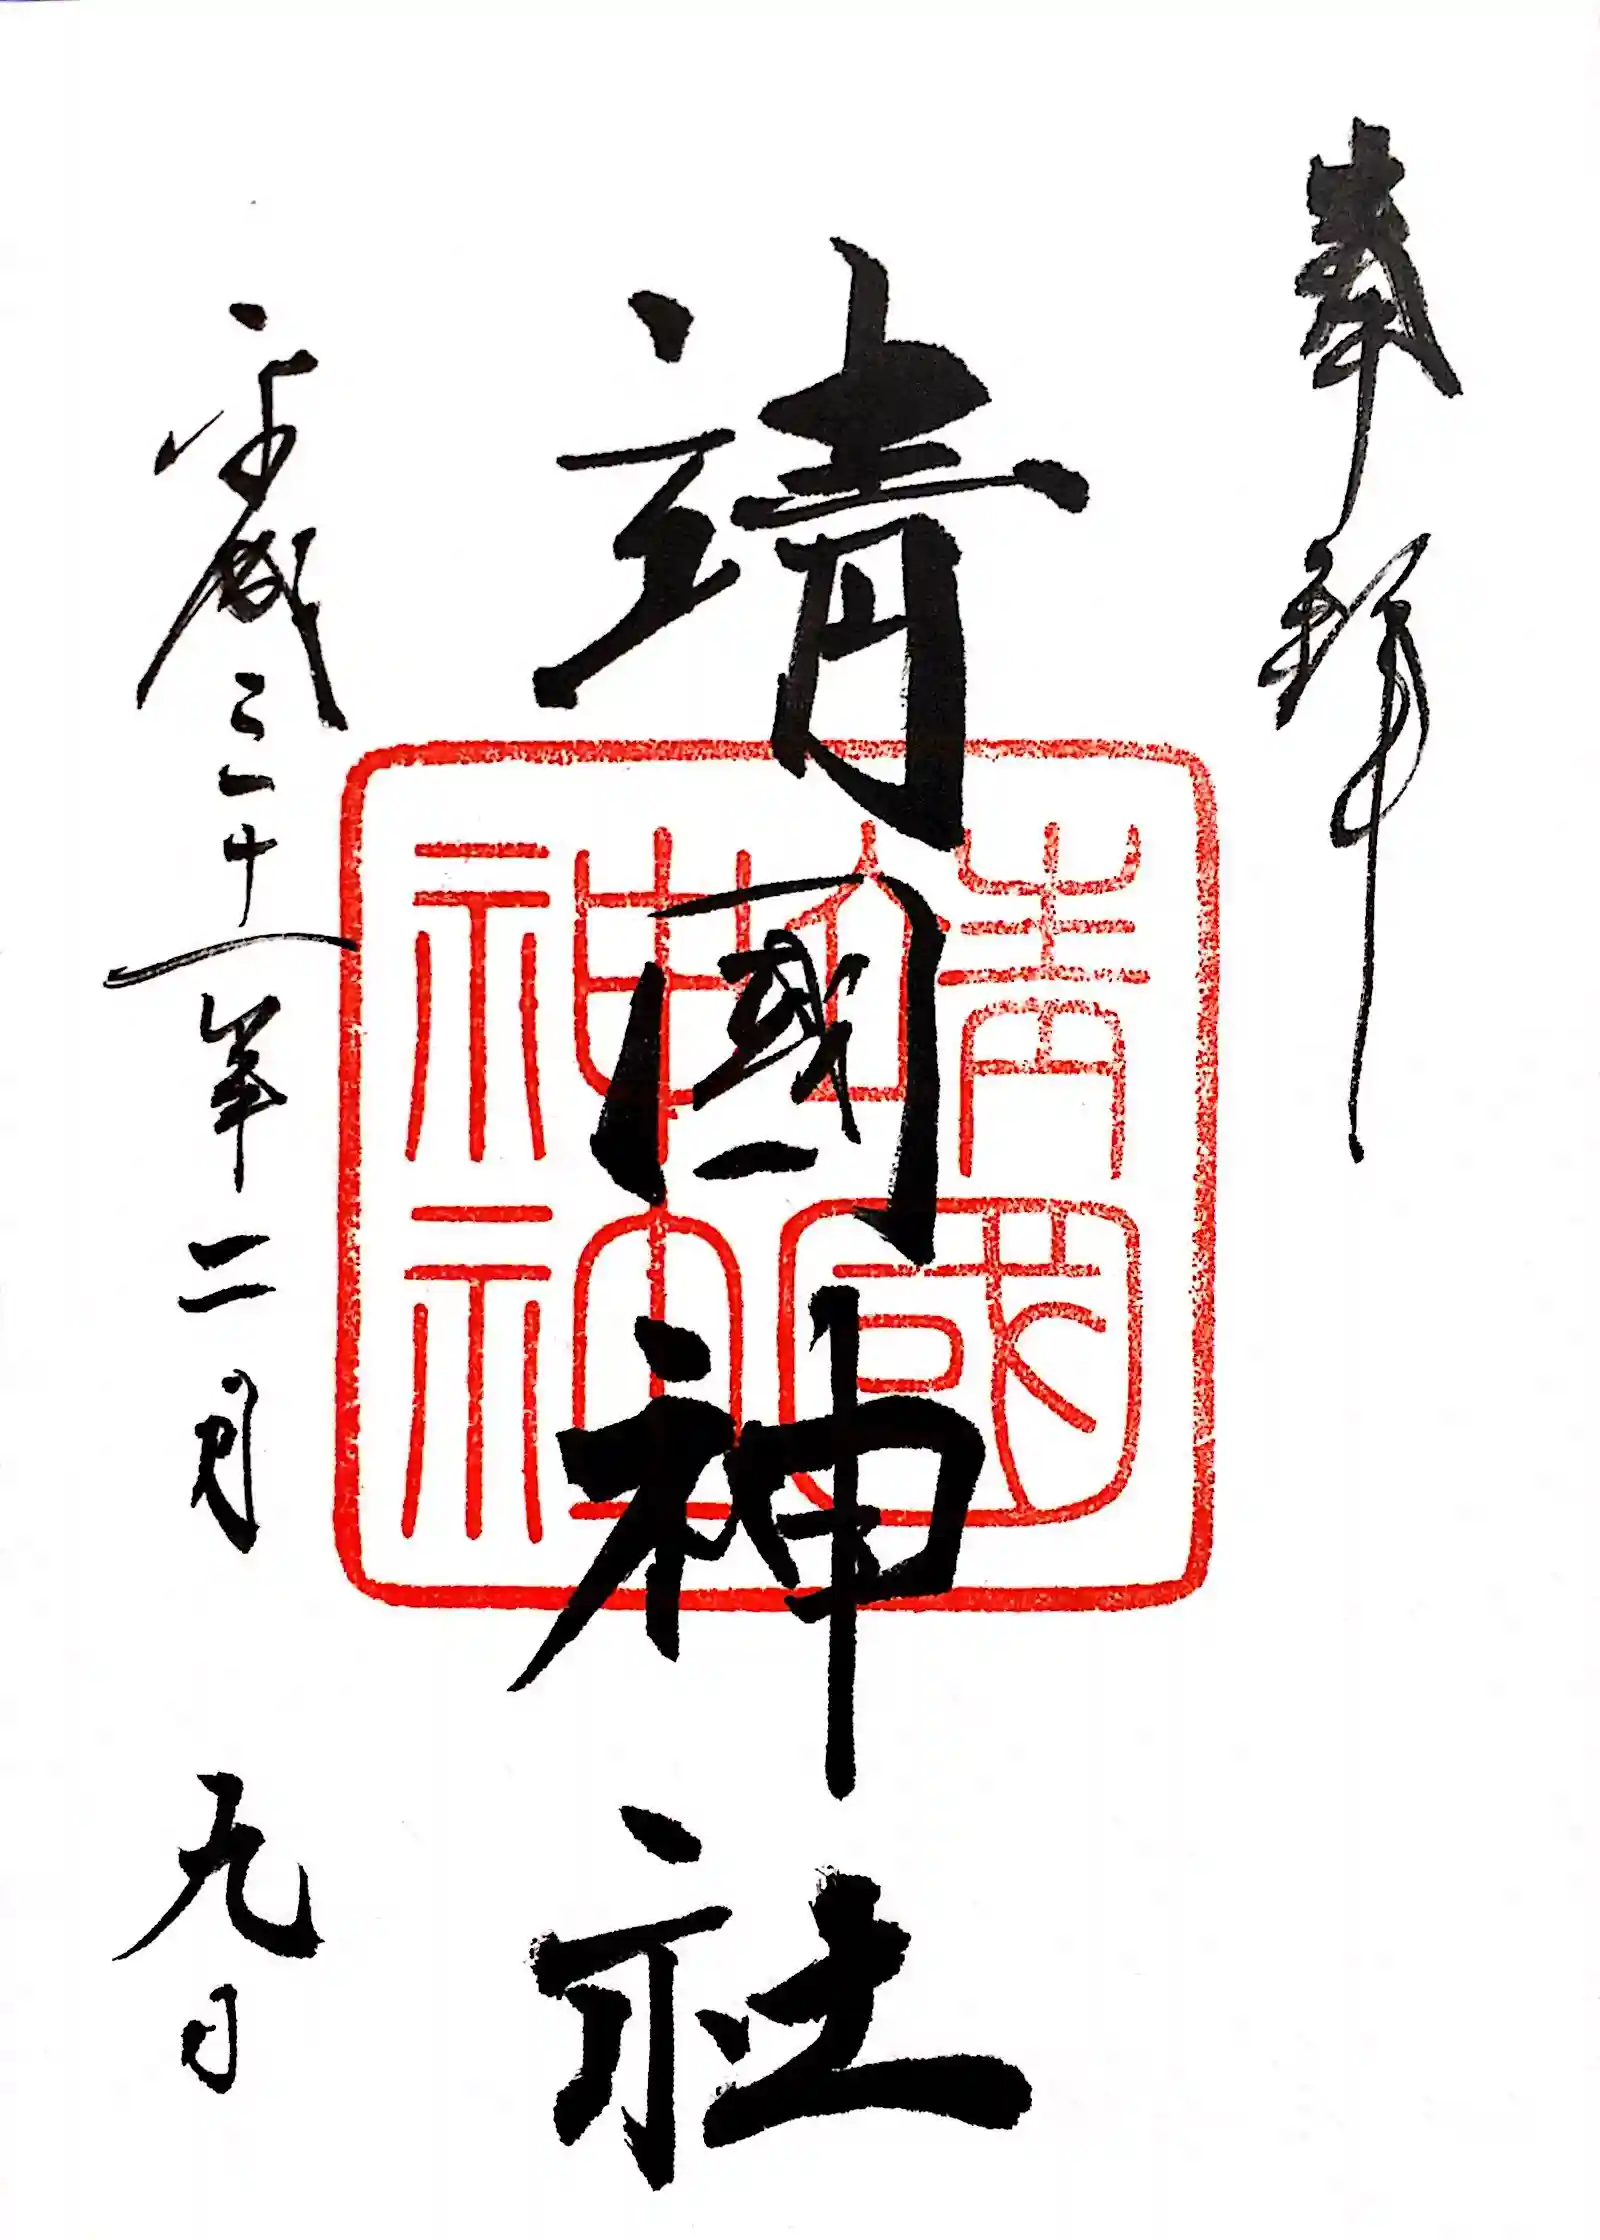 奉拝
靖國神社
靖國神社
平成三十一年二月九日